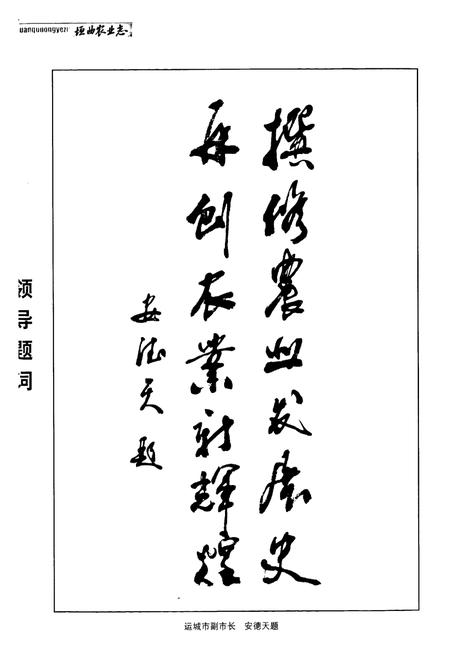 uanqunongyezi 垣曲农业志
领导题词
撰修農业发展史
再创农業新輝煌
安德天题
运城市副市长 安德天题